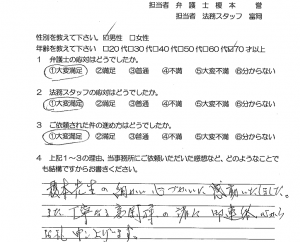 担当者 弁護士 榎本 誉
担当者 法務スタッフ 富岡
性別を教えて下さい。☑男性 □女性
年齢を教えて下さい □20代□30代□40代□50代□60代☑70才以上
1 弁護士の応対はどうでしたか。
①大変満足 ②満足 ③普通 ④不満 ⑤大変不満 ⑥分からない
2 法務スタッフの応対はどうでしたか。
①大変満足 ②満足 ③普通 ④不満 ⑤大変不満 ⑥分からない
3 ご依頼された件の進め方はどうでしたか。
①大変満足 ②満足 ③普通 ④不満 ⑤大変不満 ⑥分からない
4 上記1~3の理由、当事務所にご依頼いただいた感想など、どのようなことで
も結構ですからお書きください。
榎本先生の細かい心づかいに感動いたしました。
また丁寧なる
お礼申し上げます。